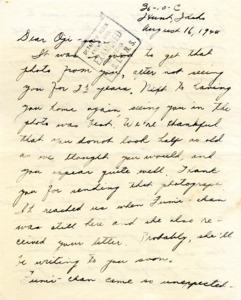 Hunt, Idaho
August 16, 1944
Dear Oji-
It was to get that
photo from you, after not seeing
you for 23 years. Next to having
you home again, seeing you in the
photo was best. We're thankful
that you do not look half as old
as we thought you would and
you appear quite well. Thank
you for sending that photograph.
It reached us when Fumi-chan
was still here and she also re-
ceived your letter. Probably, she'll
be writing to you soon.
Fumi-chan came so unexpected-